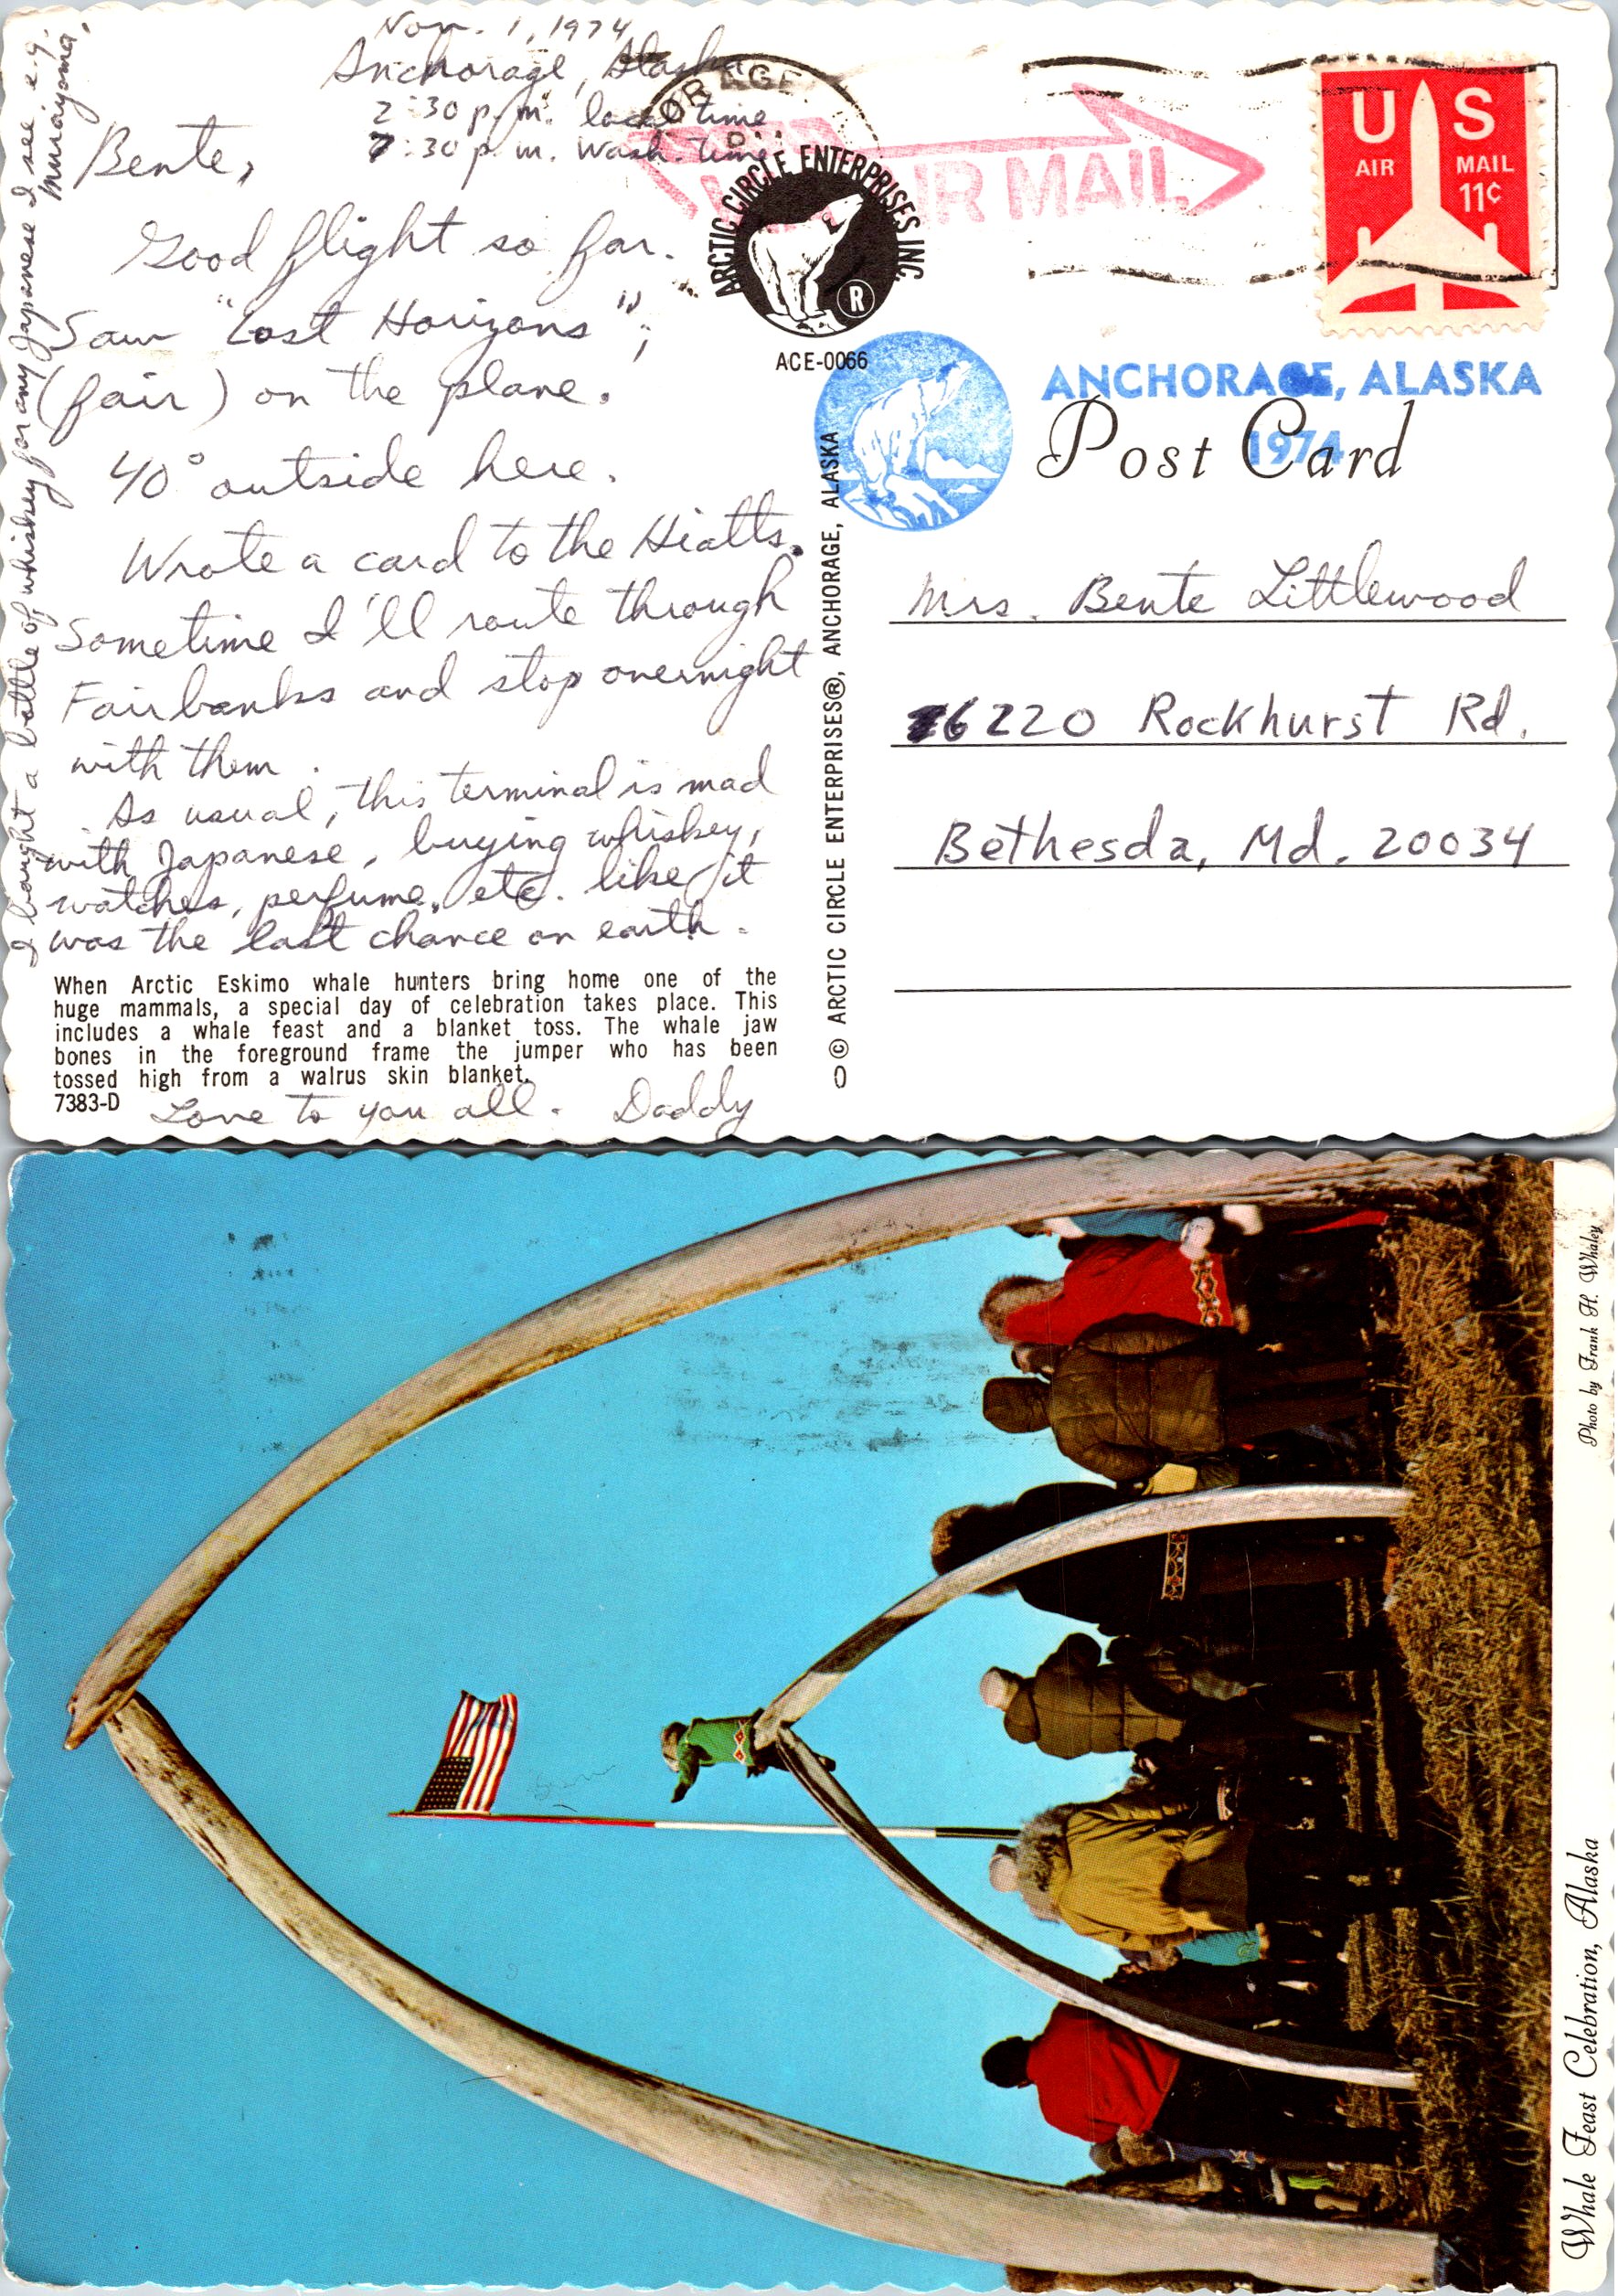 Nov. 1, 1974
Anchorage, Alaska
2:30 p.m. local time
7:30 p.m. Wash. time
Bente,
Good flight so far.
Saw "Lost Horizons";
(fair) on the plane.
40° outside here.
Wrote a card to the Hiatts.
Sometime I'll route through
Fairbanks and stop overnight
with them.
As usual, this terminal is mad
with Japanese, buying whiskey,
watches, perfume, etc. like it
was the last chance on earth.
I bought a bottle of whiskey for any Japanese I see e.g.
Muraiyoma.
When Arctic Eskimo whale hunters bring home one of the
huge mammals, a special day of celebration takes place. This
includes a whale feast and a blanket toss. The whale jaw
bones in the foreground frame the jumper who has been
tossed high from a walrus skin blanket.
7383-D
Love to you all. Daddy
ARCTIC CIRCLE ENTERPRISES INC.
®
ACE-0066
© ARCTIC CIRCLE ENTERPRISES®, ANCHORAGE, ALASKA
AIR MAIL
US
AIR MAIL
11¢
ANCHORAGE, ALASKA
1974
Post Card
Mrs. Bente Littlewood
6220 Rockhurst Rd.
Bethesda, Md. 20034
Whale Feast Celebration, Alaska
Photo by Frank H. Whaley